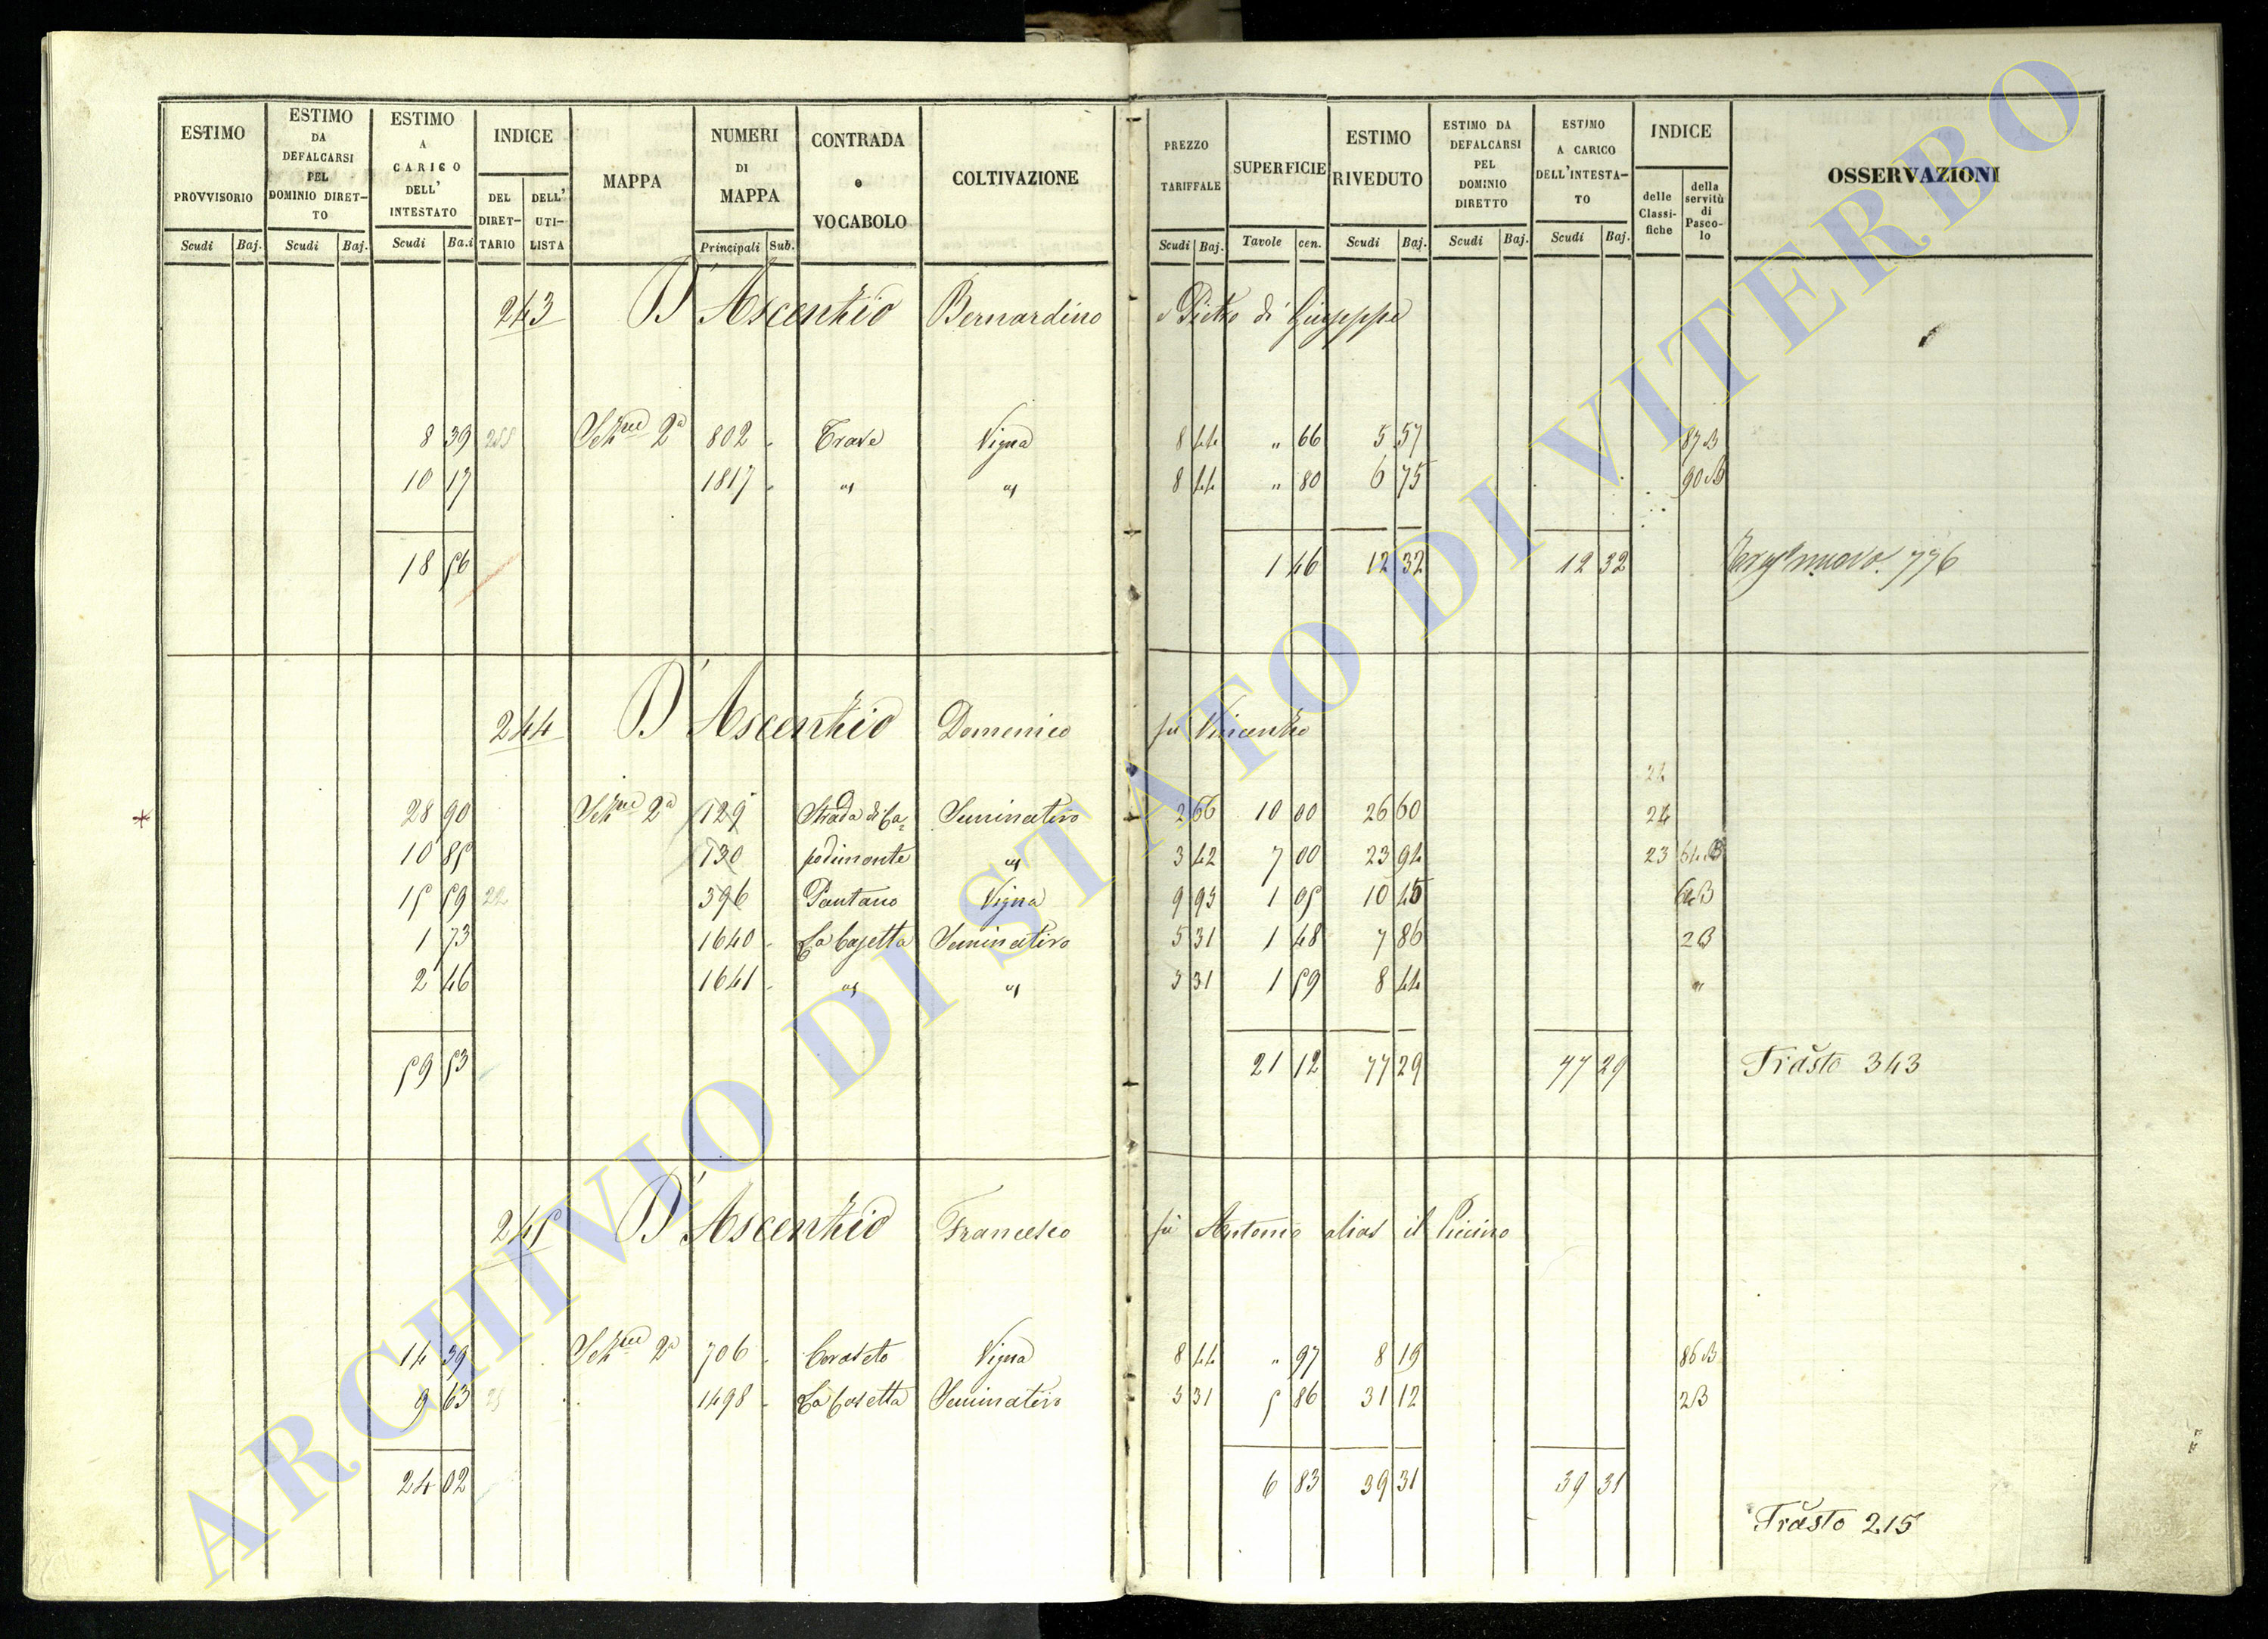 ESTIMO PROVVISORIO Scudi Baj.
ESTIMO DA DEFALCARSI PEL DOMINIO DIRET- TO Scudi Baj.
ESTIMO A CARICO DELL' INTESTATO Scudi Ba.i
INDICE DEL DIRET- TARIO DELL' UTI- LISTA
MAPPA
NUMERI DI MAPPA Principali Sub.
CONTRADA o VOCABOLO
COLTIVAZIONE
PREZZO TARIFFALE Scudi Baj.
SUPERFICIE Tavole cen.
ESTIMO RIVEDUTO Scudi Baj.
ESTIMO DA DEFALCARSI PEL DOMINIO DIRETTO Scudi Baj.
ESTIMO A CARICO DELL'INTESTA- TO Scudi Baj.
INDICE delle Classi- fiche della servitù di Pasco- lo
OSSERVAZIONI
243 D'Ascentzio Bernardino e Pietro di Giuseppe
8 39 Sez.ne 2a 802 Trave Vigna 8 44 " 66 5 57 87 B
10 17 1817 " " 8 44 " 80 6 75 90 B
18 56 1 46 12 32 12 32 nuovo 776
244 D'Ascentzio Domenico fù Vincenzo
24
28 90 Sez.ne 2a 129 Strada di Ca= Seminativo 2 66 10 00 26 60 24
10 85 130 podimonte " 3 42 7 00 23 94 23 64 B
15 59 22 396 Pantano Vigna 9 95 1 05 10 45 64 B
1 73 1640 La Casetta Seminativo 5 31 1 48 7 86 2 B
2 46 1641 " " 5 31 1 59 8 44 "
59 53 21 12 77 29 77 29 Trasto 343
245 D'Ascentzio Francesco fù Antonio alias il Piccino
14 39 Sez.ne 2a 706 Ceraseto Vigna 8 44 " 97 8 19 86 B
9 63 25 1498 La Casetta Seminativo 5 31 5 86 31 12 2 B
24 02 6 83 39 31 39 31
Trasto 215
ARCHIVIO DI STATO DI VITERBO